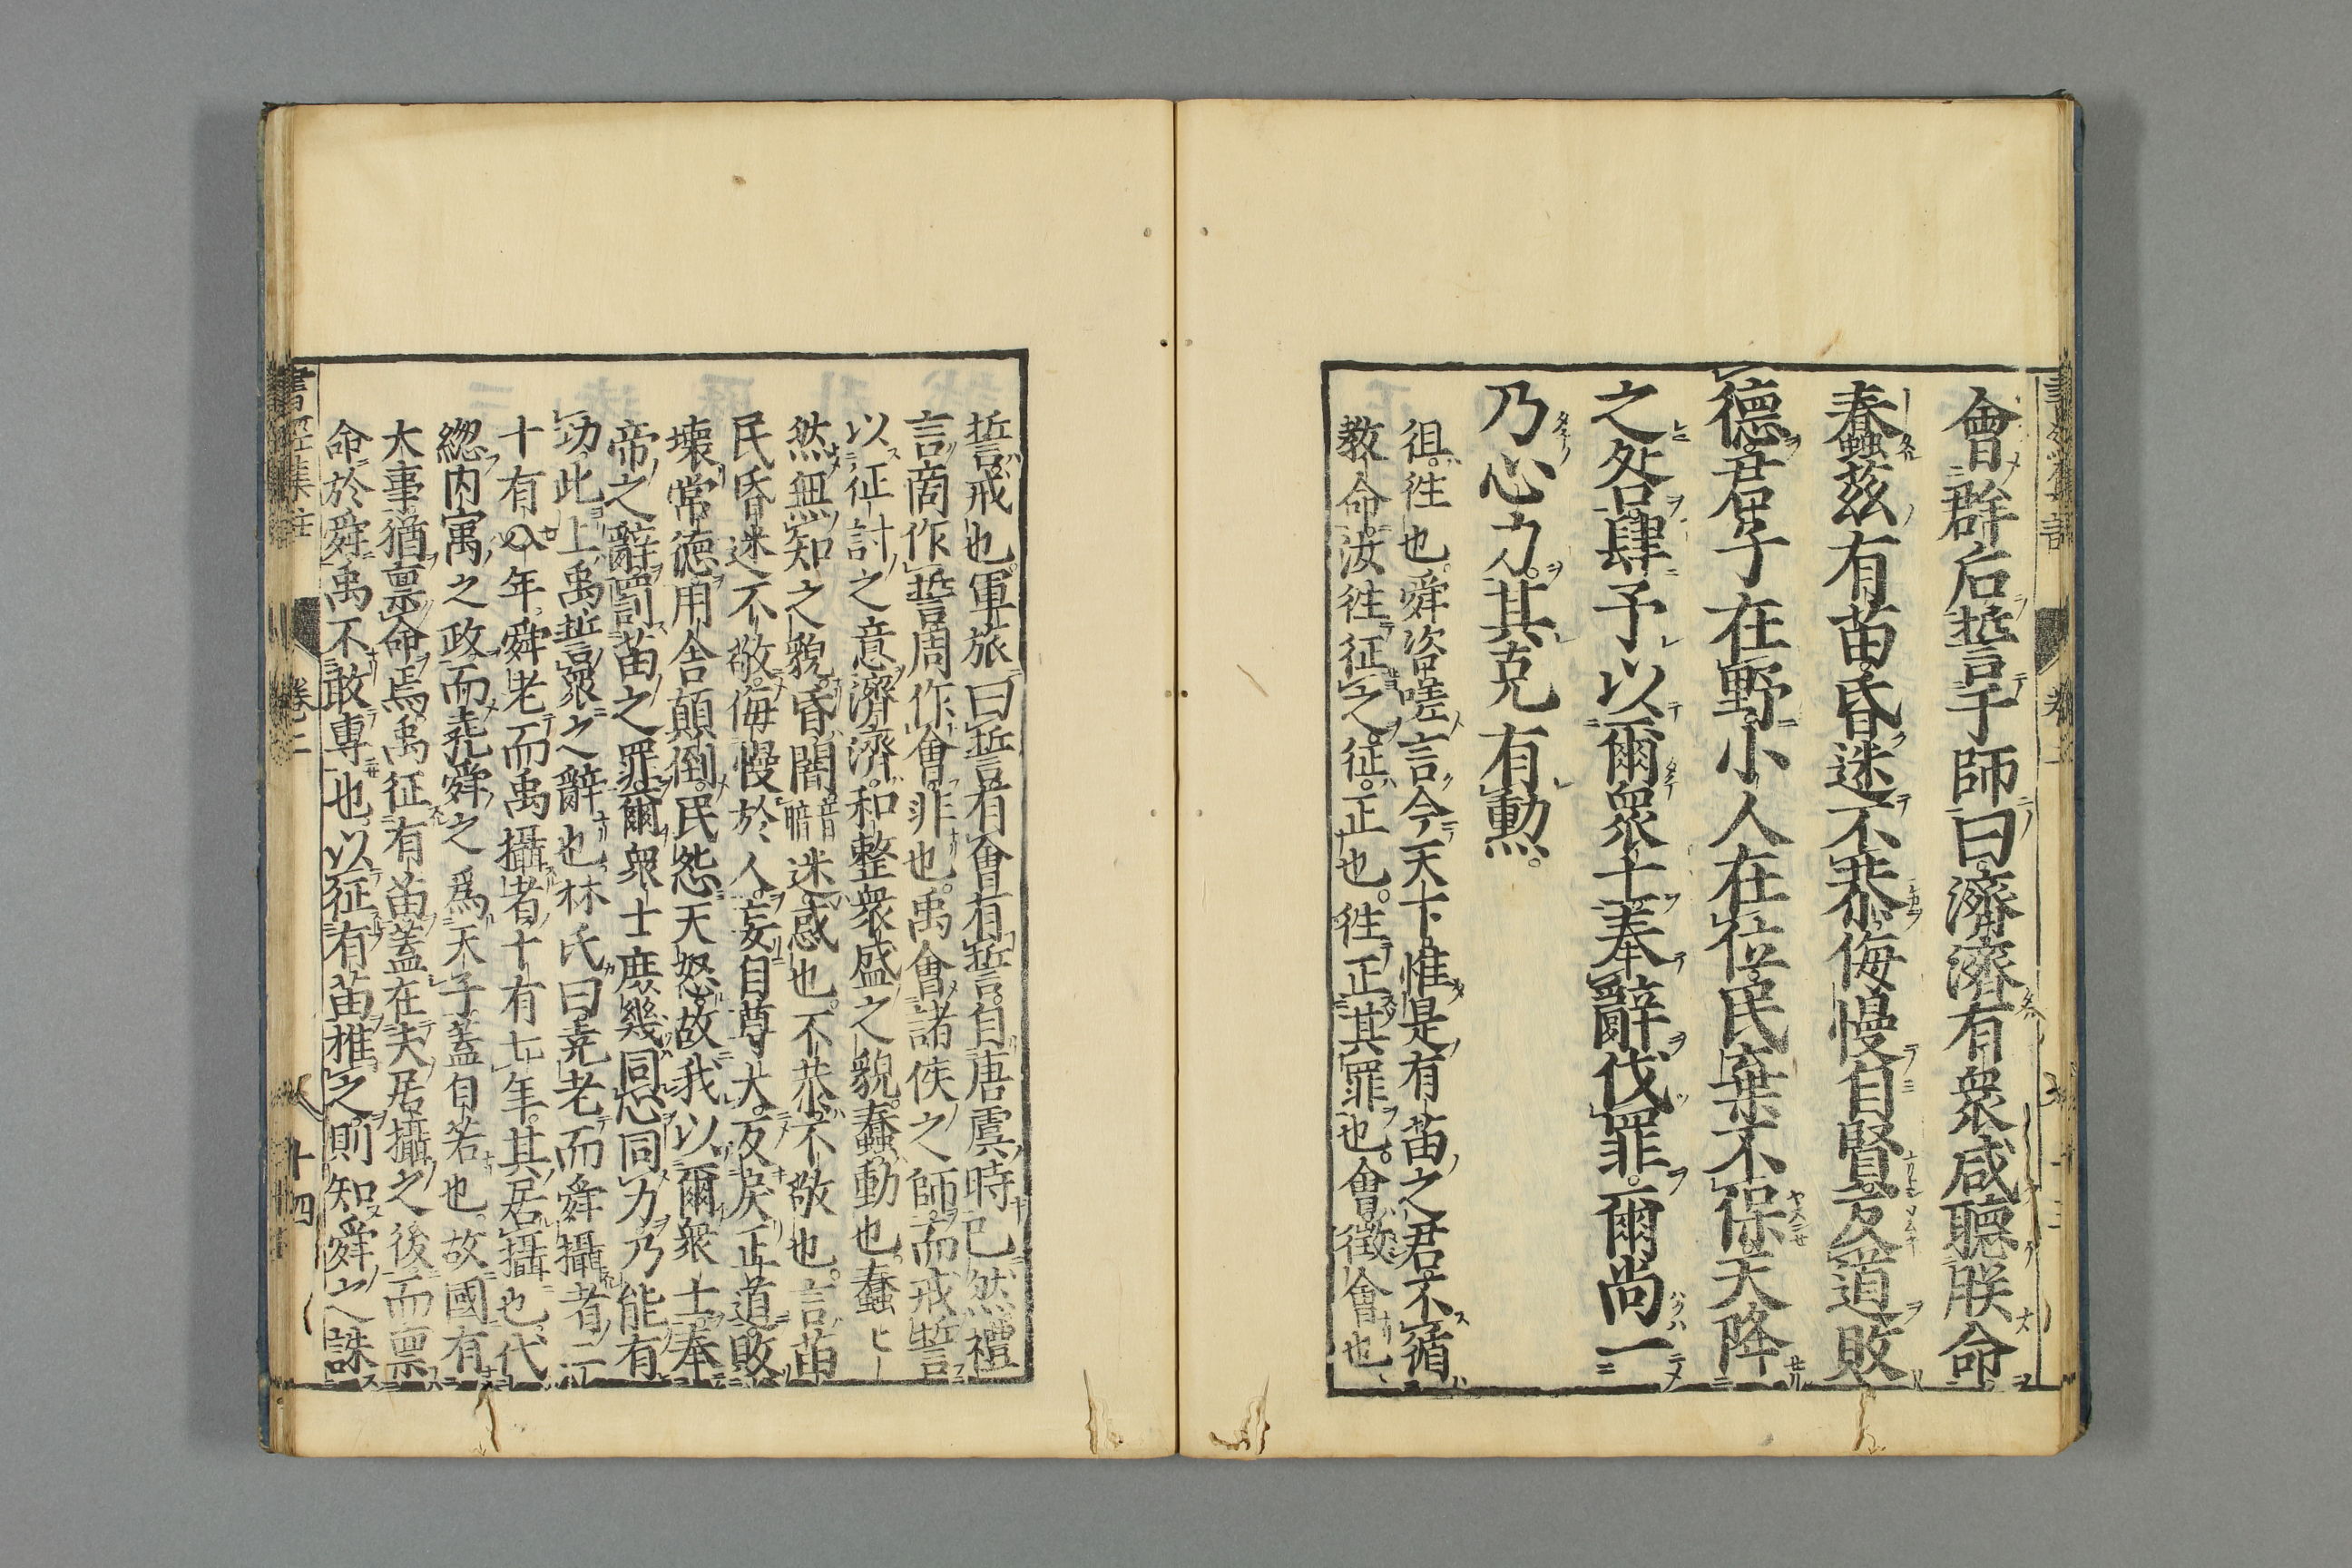 會群后誓于師曰濟濟有衆咸聽朕命
蠢茲有苗昏迷不恭侮慢自賢反道敗
德君子在野小人在位民棄不保天降
之咎肆予以爾衆士奉辭伐罪爾尚一
乃心力其克有勲
徂往也舜咨嗟言今天下惟是有苗之君不循
教命汝往征之征正也往正其罪也會徵會也
誓戒也軍旅曰誓有會有誓自唐虞時已然禮
言商作誓周作會非也禹會諸侯之師而戒誓
以征討之意濟濟和整衆盛之貌蠢動也蠢蠢
然無知之貌昏闇音暗迷惑也不恭不敬也言苗
民昏迷不敬侮慢於人妄自尊大反戾正道敗
壊常德用舍顛倒民怨天怒故我以爾衆士奉
帝之辭罰苗之罪爾衆士庶幾同心同力乃能有
功此上禹誓衆之辭也林氏曰堯老而舜攝者二
十有八年舜老而禹攝者十有七年其居攝也代
緫内寓之政而堯舜之為天子蓋自若也故國有
大事猶禀命焉禹征有苗蓋在夫居攝之後而禀
命於舜禹不敢專也以征有苗推之則知舜之誅
書經集註 卷二 十四